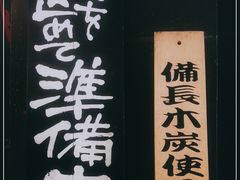 を込めて準備
備長木炭使